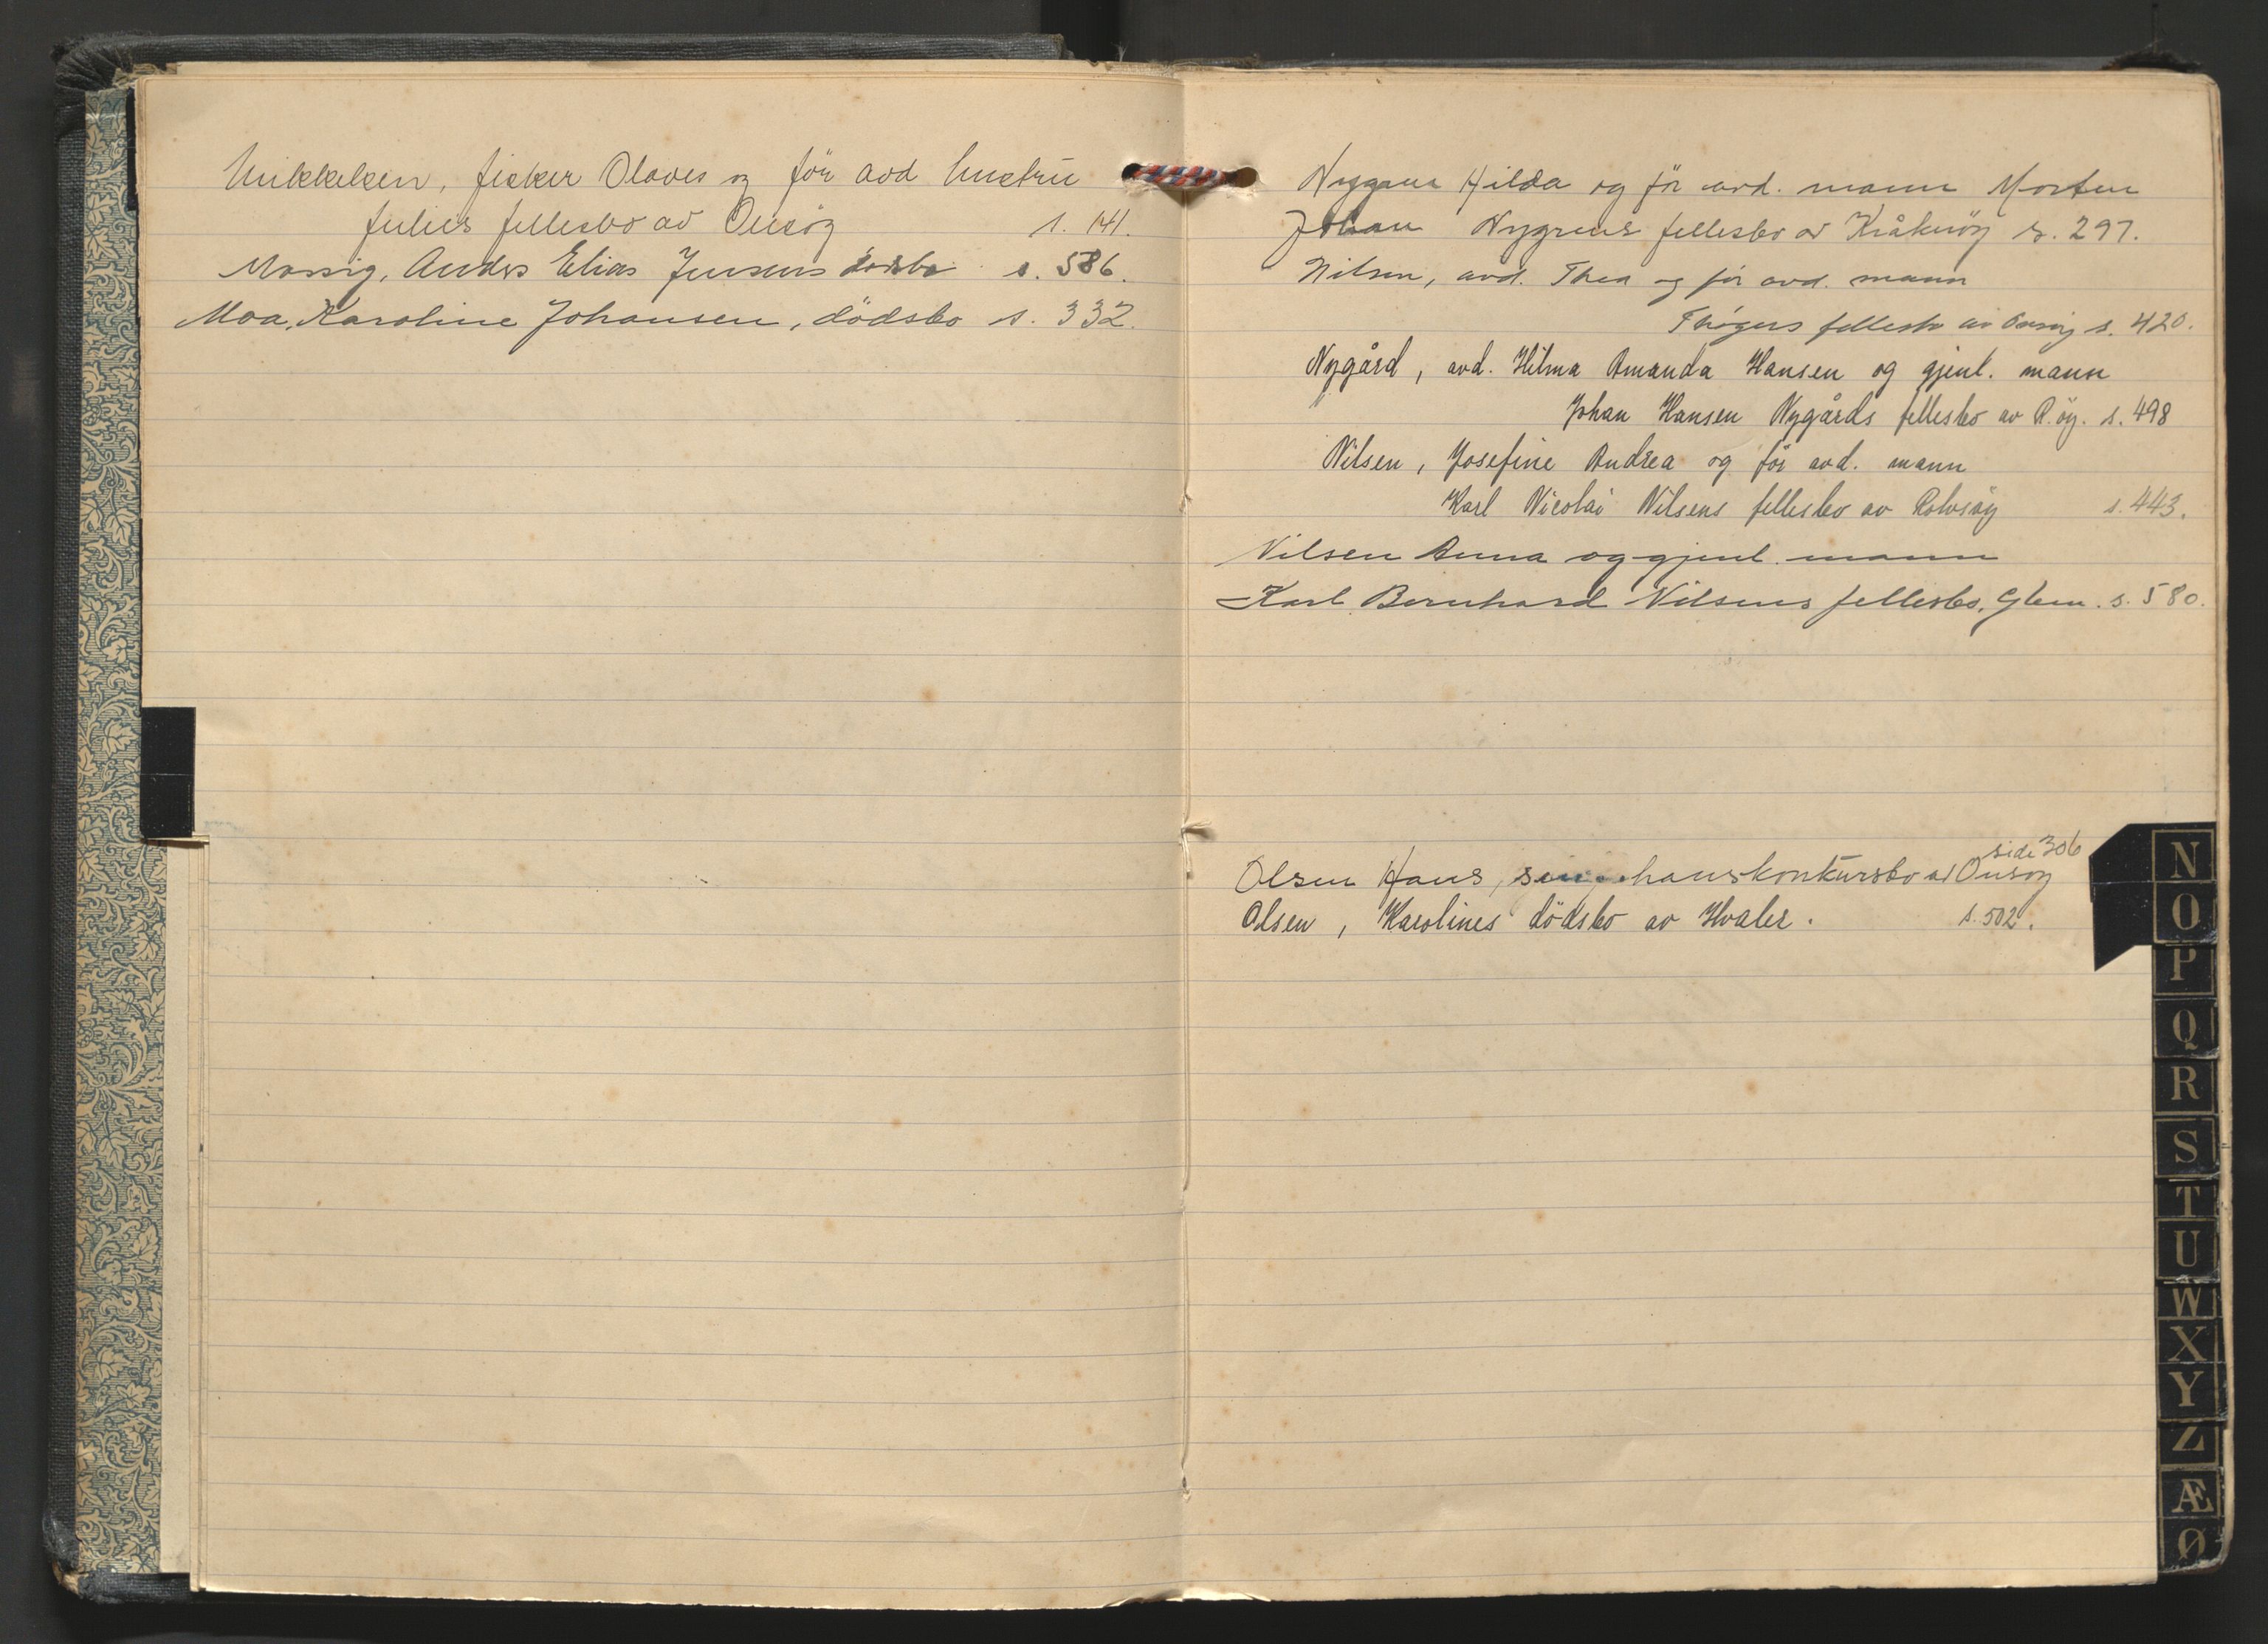 Mikkelsen, fisker Olaves og för avd hustru
Julies fellesbo av Onsöy s. 141.
Anders Elias Jensens dödsbo s. 586.
Moa, Karoline Johansen, dödsbo s. 332.
Hilda og för avd. mann Morten
Johan Nygrens fellesbo av Kråkeröy s. 297.
Nilsen, avd. Thea og för avd. mann
fellesbo av Onsöy s. 420.
Nygård, avd. Hilma Amanda Hansen og gjenl. mann
Johan Hansen Nygårds fellesbo av R.öy. s. 498
Nilsen, Josefine Andrea og för avd. mann
Karl Nicolai Nilsens fellesbo av Rolvsöy s. 443.
Nilsen Anna og gjenl. mann
Karl Bernhard Nilsens fellesbo, Glem. s. 580.
side 306
Olsen Hans, konkursbo av Onsöy
Olsen, Karolines dödsbo av Hvaler. s. 502.
N
O
P
Q
R
S
T
U
W
X
Y
Z
Æ
Ø